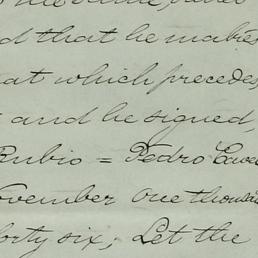 d that he makes
at which precedes,
and he signed,
Rubio = Pedro
November one thousand
forty six; Let the